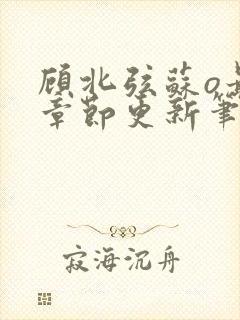 顾北弦蘇o
章節更新筆
寂海沉舟